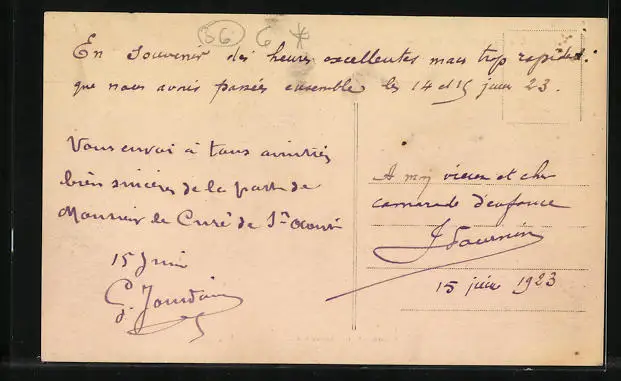 86 6 *
En souvenir des heures excellentes mais trop rapides
que nous avons passées ensemble les 14 et 15 juin 23.
Vous envoi à tous amitiés
bien sincères de la part de
Monsieur le Curé de St
15 Juin
G. Jourdain
A mon vieux et cher
camarade d'enfance
15 juin 1923